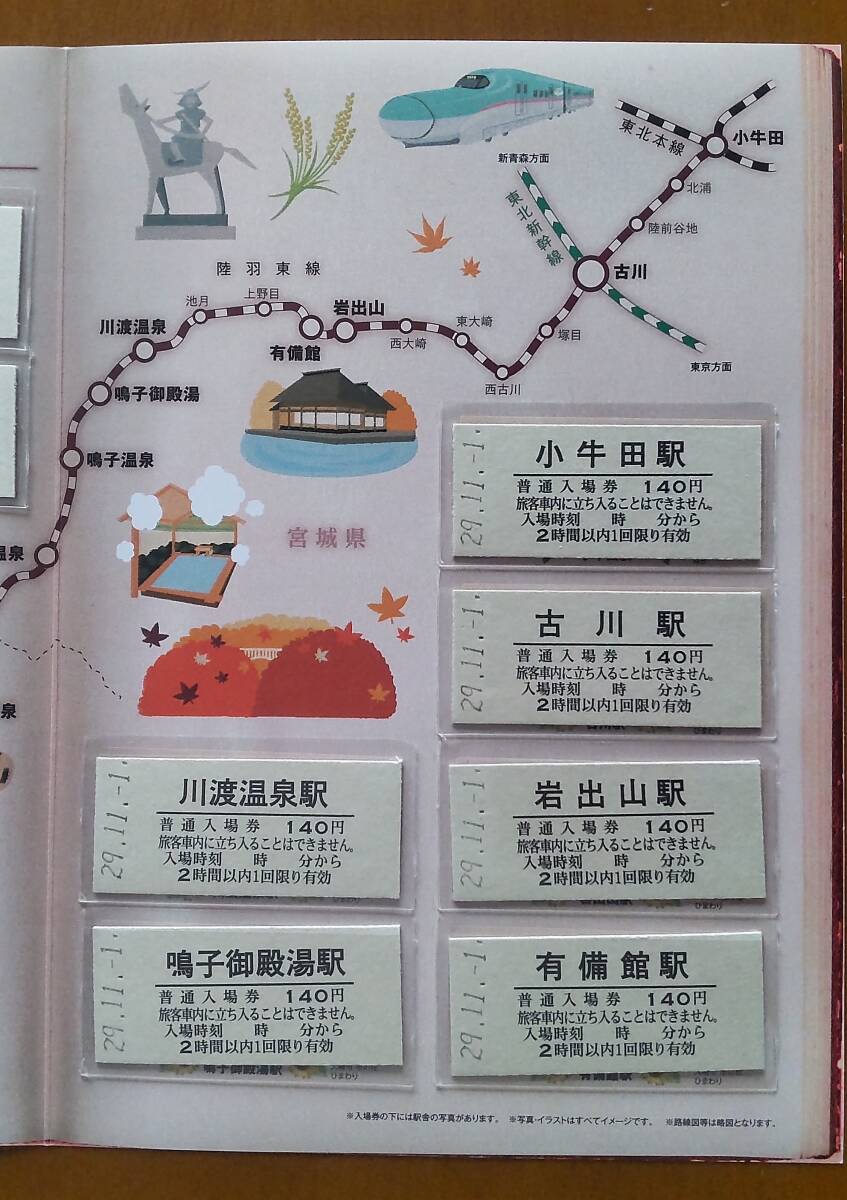 新青森方面
東北新幹線
東北本線
小牛田
北浦
陸前谷地
古川
東京方面
塚目
西古川
東大崎
西大崎
陸羽東線
岩出山
有備館
上野目
池月
川渡温泉
鳴子御殿湯
鳴子温泉
温泉
泉
宮城県
小牛田駅
普通入場券 140円
旅客車内に立ち入ることはできません。
入場時刻 時 分から
2時間以内1回限り有効
29.11.-1.
古川駅
普通入場券 140円
旅客車内に立ち入ることはできません。
入場時刻 時 分から
2時間以内1回限り有効
29.11.-1.
川渡温泉駅
普通入場券 140円
旅客車内に立ち入ることはできません。
入場時刻 時 分から
2時間以内1回限り有効
29.11.-1.
岩出山駅
普通入場券 140円
旅客車内に立ち入ることはできません。
入場時刻 時 分から
2時間以内1回限り有効
29.11.-1.
ひまわり
鳴子御殿湯駅
普通入場券 140円
旅客車内に立ち入ることはできません。
入場時刻 時 分から
2時間以内1回限り有効
29.11.-1.
鳴子御殿湯駅
ひまわり
有備館駅
普通入場券 140円
旅客車内に立ち入ることはできません。
入場時刻 時 分から
2時間以内1回限り有効
29.11.-1.
有備館駅
ひまわり
※入場券の下には駅舎の写真があります。 ※写真・イラストはすべてイメージです。 ※路線図等は略図となります。